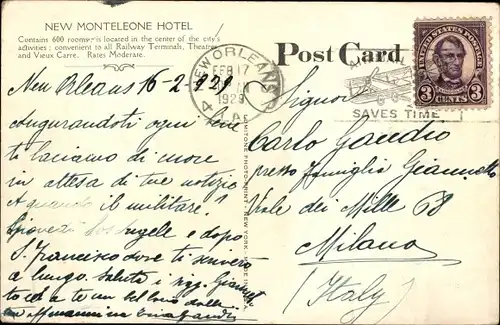 NEW MONTELEONE HOTEL
Contains 600 rooms, is located in the center of the city's
activities; convenient to all Railway Terminals, Theatres
and Vieux Carre. Rates Moderate.
New Orleans 16-2 929
augurandoti ogni bene
ti baciamo di cuore
in attesa di tue notizie
A quando il militare?
Los Angele e dopo
S. Francisco dove ti scriverò
a lungo. Saluta i sigg.
a te un
Post Card
NEW ORLEANS
FEB 17
1929
4
LA.
SAVES TIME
UNITED STATES POSTAGE
LINCOLN
3 CENTS 3
Signor
Carlo Gandio
presso famiglia
Viale dei Mille 68
Milano
(Italy)